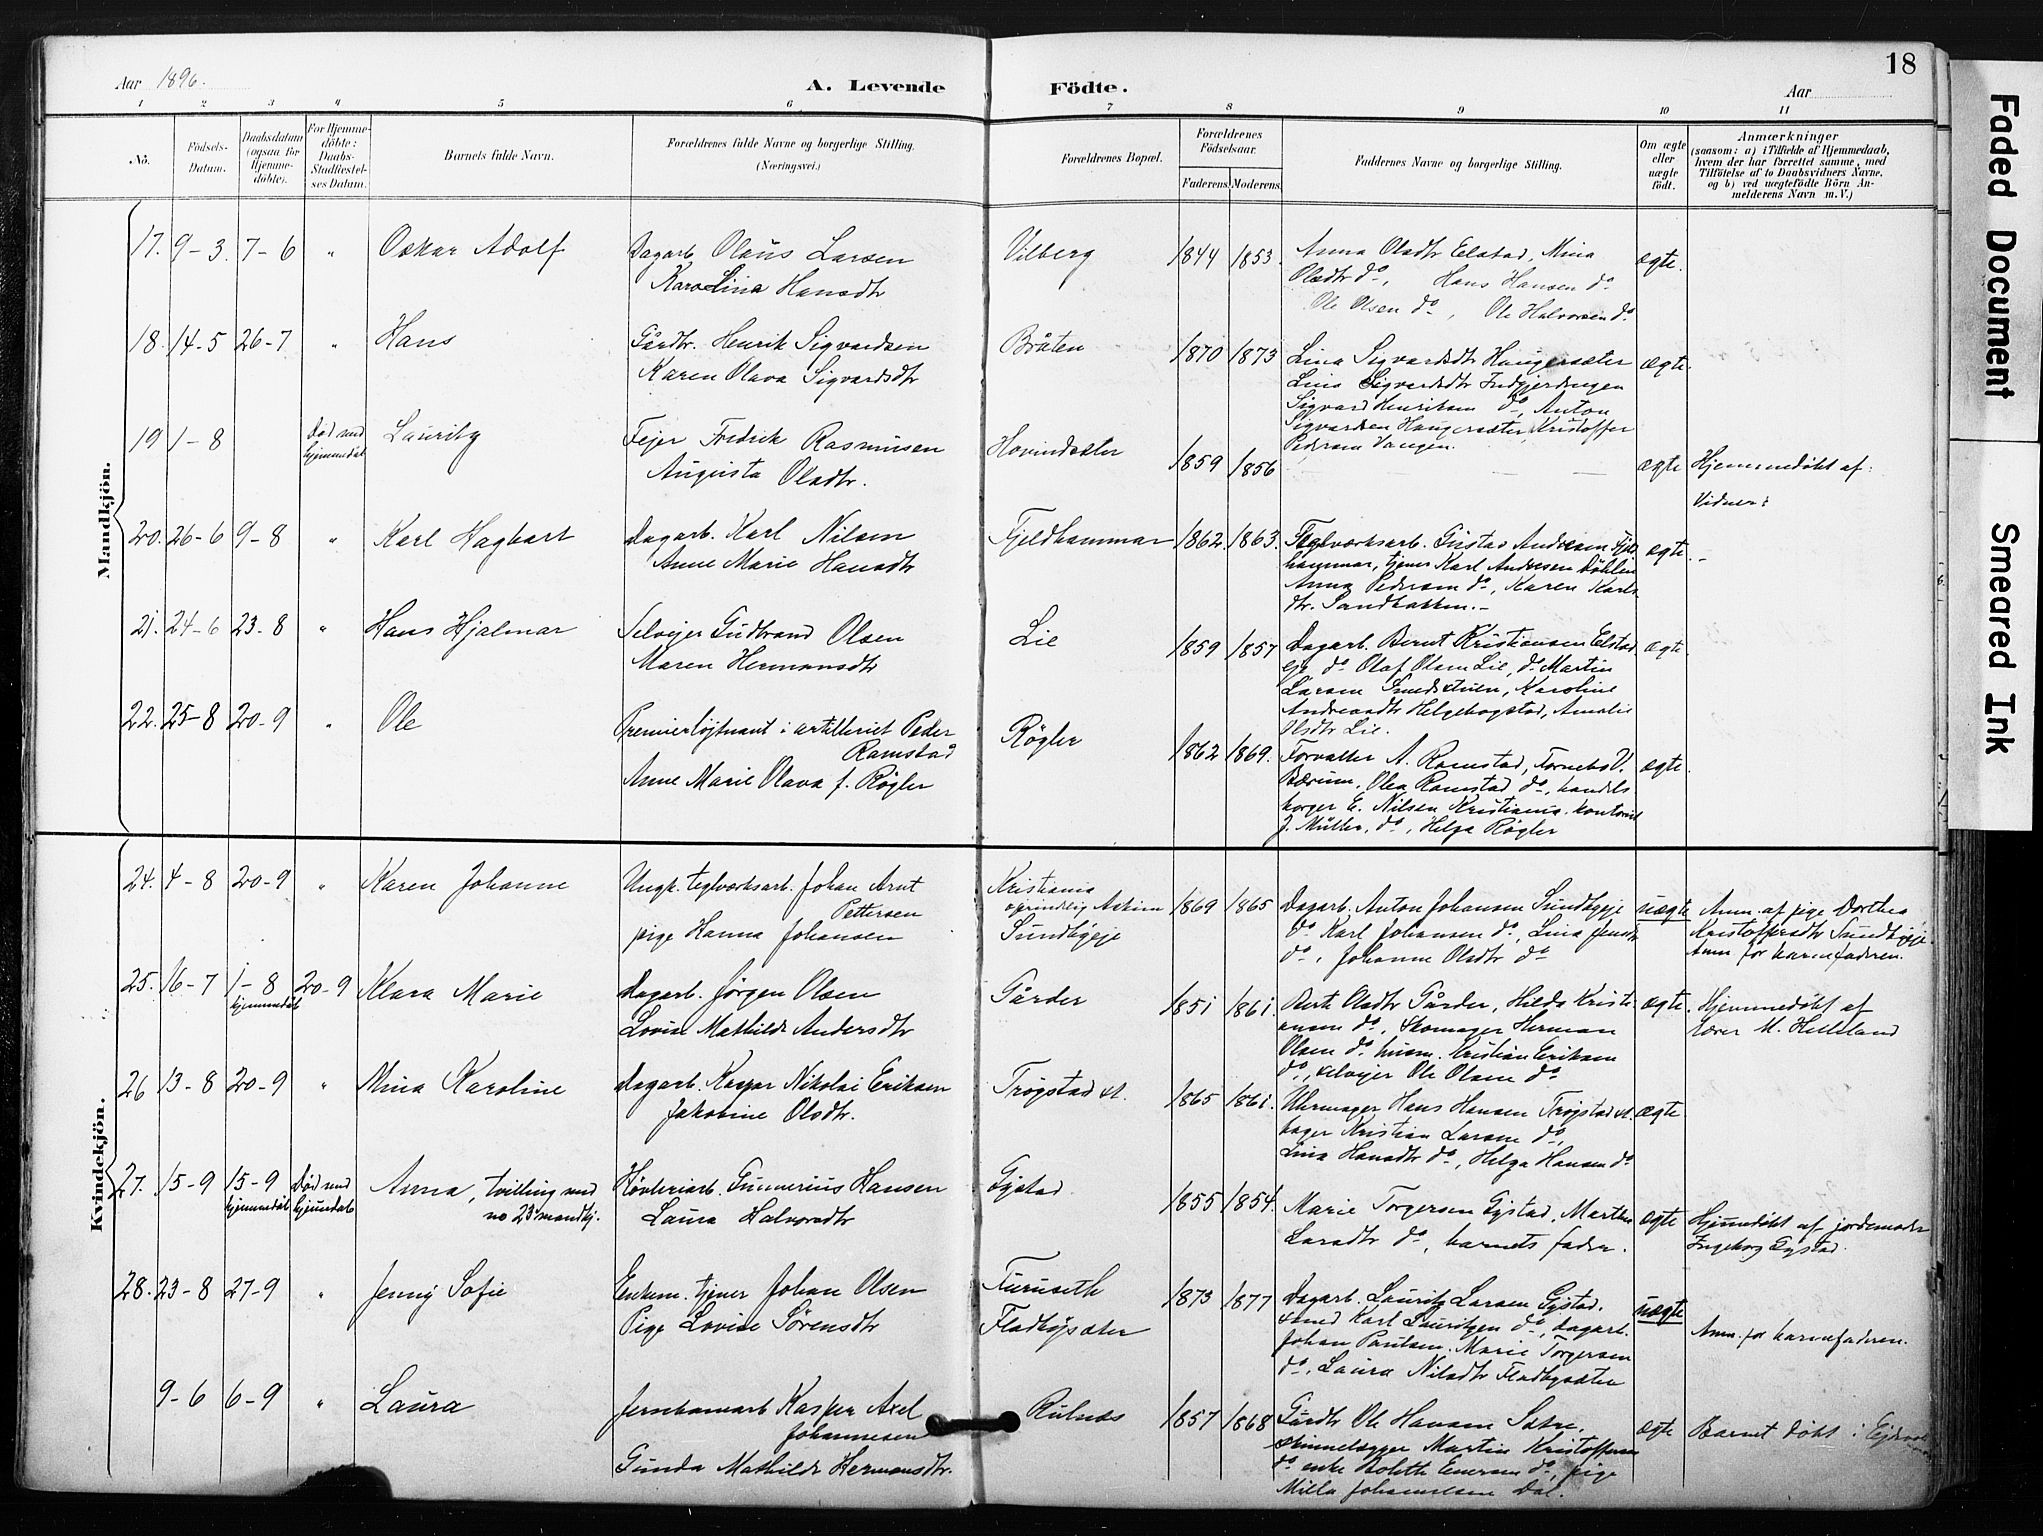 Aar 1896.
A. Levende
Födte.
Aar
18
1 2 3 4 5 6 7 8 9 10 11
No.
Födsels-Datum.
Daabsdatum (ogsaa for Hjemme-döbte).
For Hjemme-döbte: Daabs-Stadfæstel-ses Datum.
Barnets fulde Navn.
Forældrenes fulde Navne og borgerlige Stilling.
(Næringsvei.)
Forældrenes Bopæl.
Forældrenes Födselsaar.
Faderens. Moderens.
Faddernes Navne og borgerlige Stilling.
Om ægte eller uægte födt.
Anmærkninger
(saasom: a) i Tilfælde af Hjemmedaab, hvem der har forrettet samme, med Tilföielse af to Daabsvidners Navne, og b) ved uægtefödte Börn An-melderens Navn m. V.)
Mandkjön.
17. 9-3. 7-6 " Oskar Adolf
Dagarb. Olaus Larsen
Karolina Hansdtr
Vilberg 1844 1853.
Anna Olsdtr Elstad, Mina
Olsdtr do, Hans Hansen do
Ole Olsen do, Ole Halvorsen do.
ægte.
18. 14-5 26-7 " Hans
Gårdbr. Henrik Sigvardsen
Karen Olava Sigvardsdtr
Bråten 1870 1873
Lina Sigvardsdtr Haugersæter
Lina Sigvardsdtr Indgjerdingen
Sigvard Henriksen do, Anton
Sigvardsen Haugersæter, Kristoffer
Pedersen Vangen.
ægte.
19 1-8 Död med hjemmedåb Lauritz
Fejer Fredrik Rasmusen
Augusta Olsdtr.
Hovindsæter 1859 1856 ægte
Hjemmedöbt af:
Vidner:
20. 26-6 9-8 " Karl Hagbart
Dagarb. Karl Nilsen
Anne Marie Hansdtr
Fjeldhammar 1862. 1863.
Teglværksarb. Gustav Andersen Fjeld
hammar, tjener Karl Andresen Döhlen
Anna Pedersen do, Karen Karls
dtr. Sandbakken.-
ægte.-
21. 24-6 23-8 " Hans Hjalmar
Selvejer Gudbrand Olsen
Maren Hermansdtr
Lie 1859 1857
Dagarb. Bernt Kristiansen Elstad
do Olaf Olsen Lie, do Martin
Larsen Smedstuen, Karoline
Andreasdtr Helgebogstad, Amalie
Olsdtr Lie.
ægte.
22. 25-8 20-9 " Ole
Premierløjtnant i artilleriet Peder
Ramstad
Anne Marie Olava f. Røgler
Røgler 1862 1869.
Forvalter A. Ramstad, Fornebo V.
Bærum, Olea Ramstad do, handels
borger E. Nilsen Kristiania, kontorist
J. Müller, do, Helga Røgler
ægte.
Kvindekjön.
24. 4-8 20-9 " Karen Johanne
Ungk. teglværksarb. Johan Arnt
Pettersen
pige Hanna Johansen
Kristiania
oprindlig Askim
Sundbyeje
1869 1865
Dagarb. Anton Johansen Sundbyeje
do Karl Johansen do, Lina Jensdtr
do, Johanne Olsdtr do
uægte
Anm. af pige Dorthea
Kristoffersdtr Sundbyeje.
Anm. for barnefaderen.
25. 16-7 1-8 hjemmedåb 20-9 Klara Marie
Dagarb. Jørgen Olsen
Lovise Mathilde Andersdtr
Gårder 1851 1861.
Berte Olsdtr Gårder, Hilda Kristi
ansen do, Skomager Herman
Olsen do, husm. Kristian Eriksen
do, selvejer Ole Olsen do
ægte.
Hjemmedöbt af
Lærer M. Helleland
26 13-8 20-9 " Mina Karoline
Dagarb. Kasper Nikolai Eriksen
Jakobine Olsdtr.
Trøgstad st. 1865 1861.
Uhrmager Hans Hansen Trøgstad st.
bager Kristian Larsen do,
Lina Hansdtr do, Helga Hansen do
ægte
27. 15-9 15-9 hjemmedåb Död med hjemdåb Anna, tvilling med
no 23 mandkj.
Høvleriarb. Gunnerius Hansen
Laura Halvorsdtr
Gystad 1855 1854.
Marie Torgersen Gystad, Marthe
Larsdtr do, barnets fader.
ægte
Hjemmedöbt af jordemoder
Ingeborg Gystad.
28. 23-8 27-9 " Jenny Sofie
Enkem. tjener Johan Olsen
Pige Lovise Sørensdtr
Furuseth
Fladbysæter
1873 1877
Dagarb. Lauritz Larsen Gystad,
smed Karl Lauritzen do, dagarb.
Johan Paulsen, Marie Torgersen
do, Laura Nilsdtr Fladbysæter
uægte
Anm. for barnefaderen.
9-6 6-9 " Laura
Jernbanearb Kasper Axel
Johannesen
Gunda Mathilde Hermansdtr.
Rulnæs 1857 1868
Gårdbr Ole Hansen Sætre,
Skindlægger Martin Kristoffersen
do, enke Bolette Enersen do, pige
Milla Johannesen Dal.
ægte
Barnet döbt i Ejdsvol
Faded Document
Smeared Ink